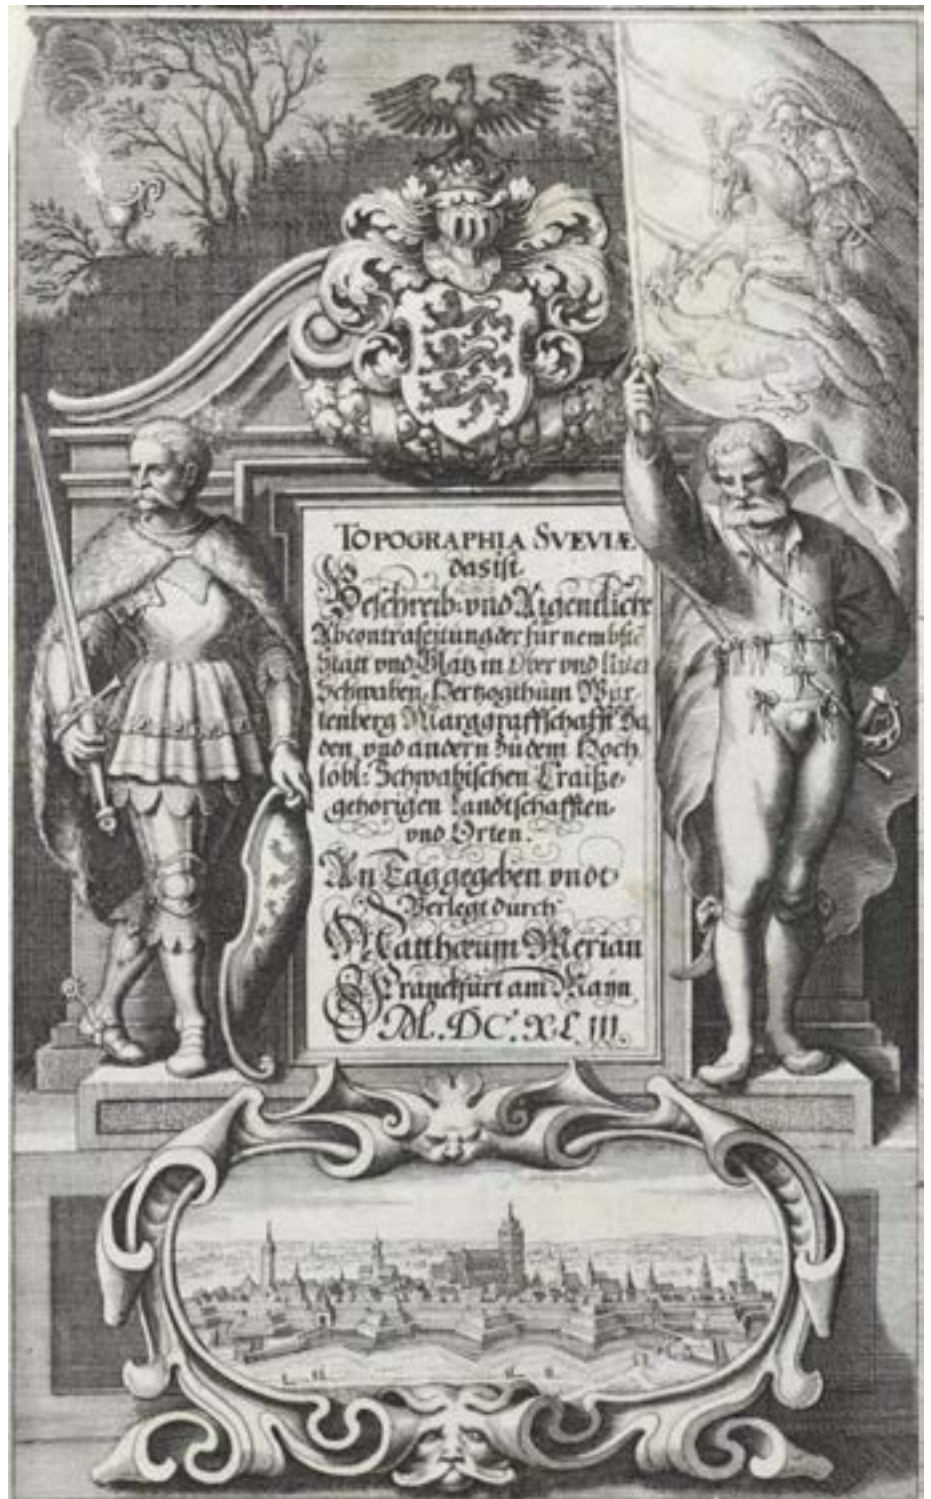 TOPOGRAPHIA SVEVIÆ
das ist
Beschreib: vnd Aigentliche
Abcontrafeitung der fürnembste
Statt vnd Plätz in Ober vnd Nider
Schwaben, Hertzogthum Wür-
tenberg Marggraffschafft Ba
den, vnd andern zu dem Hoch
lobl: Schwabischen Craiße
gehörigen Landtschafften
vnd Orten.
An Tag gegeben vndt
Verlegt durch
Matthæum Merian
Franckfurt am Mayn
M.DC.XLIII.